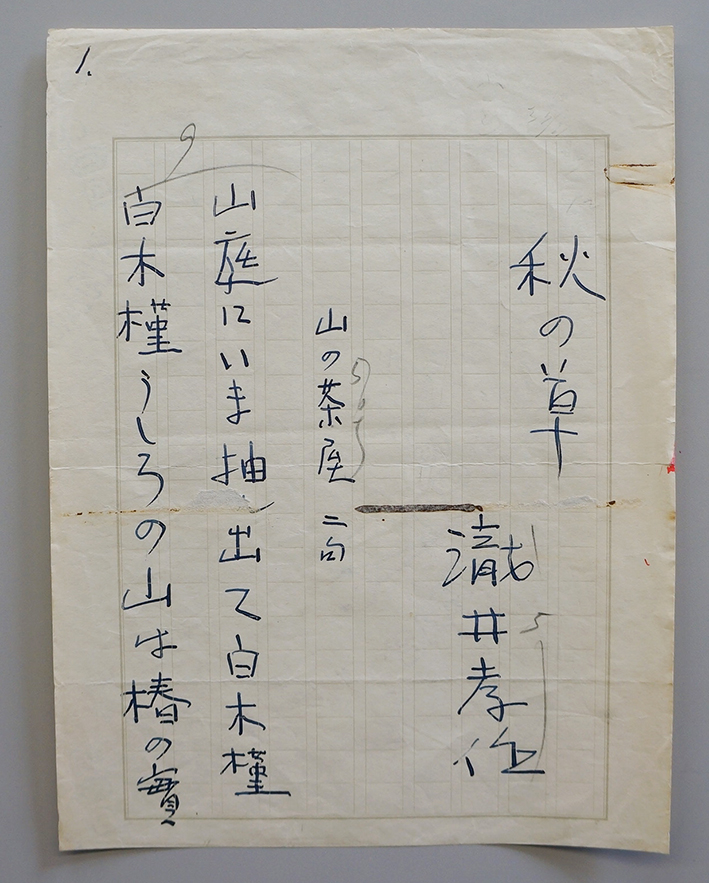 1.
秋の草
瀧井孝作
山の茶屋 二句
山庭にいま抽出て白木槿
白木槿うしろの山は椿の實